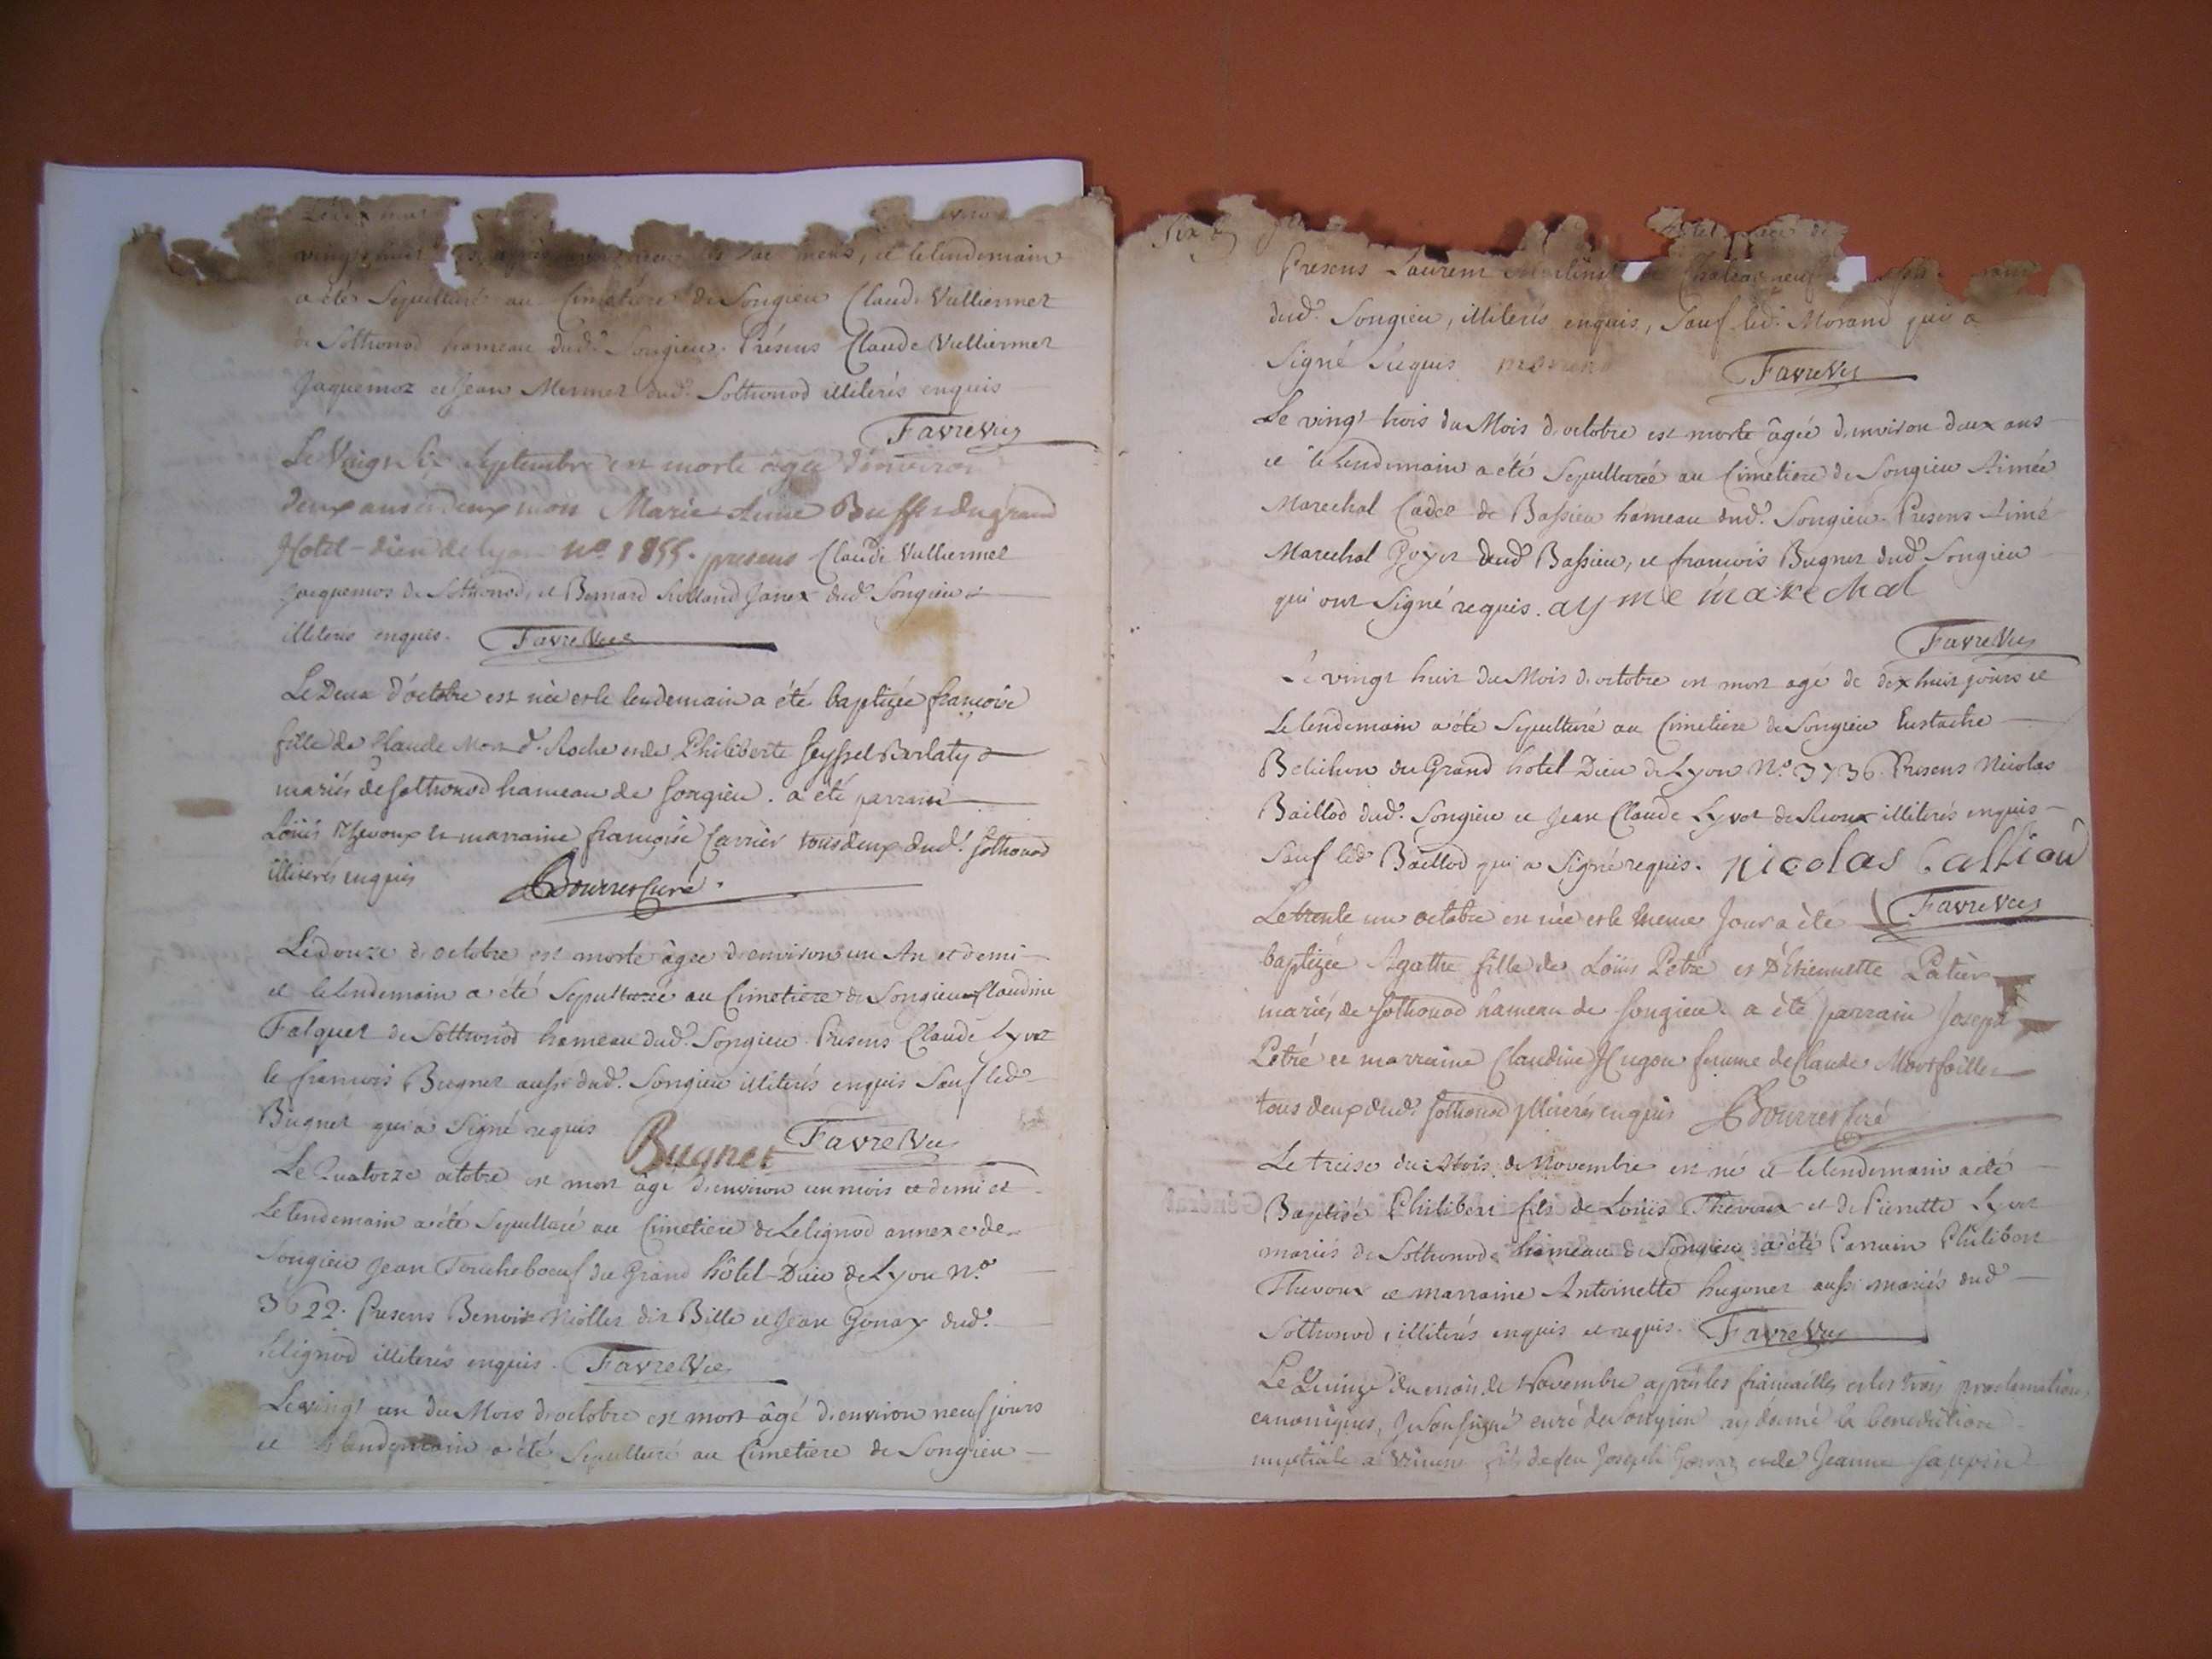 vingt huit ans, après avoir reçu les Sacremens, et le lendemain
a été Sepulturé au Cimetiere de Songieu Claude Vulliermet
de Sothonod hameau dud.t Songieu. Présens Claude Vulliermet
Jaquemoz et Jean Mermet dud.t Sothonod illiterés enquis
Favre Vic
Le Vingt Six Septembre est morte agée d'environ
deux ans et deux mois Marie Anne Buffet du grand
Hotel-dieu de lyon n.º 1855. presens Claude Vulliermet
Jacquemos de Sothonod, et Bernard Rolland Janex dud.t Songieu
illiterés enquis. Favre Vic
Le Deux d'octobre est née et le lendemain a été baptizée françoise
fille de Claude Mond. Roche et de Philiberte Seyssel Barlaty
mariés de Sothonod hameau de Songieu. a été parrain
Loüis Thevoux et marraine françoise Carrier tous deux dud.t Sothonod
illiterés enquis Bourret Curé.
Le douze d'octobre est morte âgée d'environ un An et demi
et le lendemain a été Sepulturée au Cimetiere de Songieu Claudine
Falquet de Sothonod hameau dud.t Songieu Présens Claude Lyvet
le françois Bugnet aussi dud.t Songieu illiterés enquis Sauf led.t
Bugnet qui a Signé requis Bugnet Favre Vic
Le Quatorze octobre est mort âgé d'environ un mois et demi et
le lendemain a été Sepulturé au Cimetiere de Lelignod annexe de
Songieu Jean Toucheboeuf du Grand hôtel-Dieu de Lyon N.º
3622. Presens Benoit Niollet dit Bille et Jean Gonay dud.t
Lelignod illiterés enquis. Favre Vic
Le vingt un du Mois d'octobre est mort âgé d'environ neuf jours
et le lendemain a été Sepulturé au Cimetiere de Songieu
Presens Laurent
dud.t Songieu, illiterés enquis, Sauf led.t Morand qui a
Signé requis morand Favre Vic
Le vingt trois du Mois d'octobre est morte âgée d'environ deux ans
et le lendemain a été Sepulturée au Cimetiere de Songieu Aimée
Marechal Cadet de Bassieu hameau dud.t Songieu. Presens Aimé
Marechal Goyet dud.t Bassieu, et françois Bugnet dud.t Songieu
qui ont Signé requis. ayme marechal
Favre Vic
Le vingt huit du Mois d'octobre est mort agé de dix huit jours et
Le lendemain a été Sepulturé au Cimetiere de Songieu Eustache
Belichon du Grand hotel-Dieu de Lyon N.º 3736. Presens Nicolas
Baillod dud.t Songieu et Jean Claude Lyvet de Sioux illiterés enquis
Sauf led.t Baillod qui a Signé requis. Nicolas
Favre Vic
Le trente un octobre est née et le meme Jour a été
baptizée Agathe fille de Loüis Petre et D'Etiennette Patier
mariés de Sothonod hameau de Songieu. a été parrain Joseph
Petré et marraine Claudine Hugon femme de Claude Montfaillet
tous deux dud.t Sothonod illiterés enquis Bourret Curé
Le treise du Mois de Novembre est né et le lendemain a été
Baptisé Philibert fils de Loüis Thevoux et de Pierrette Lyvet
mariés de Sothonod hameau de Songieu a été Parrain Philibert
Thevoux et marraine Antoinette hugonet aussi mariés dud.t
Sothonod, illiterés enquis et requis. Favre Vic
Le Quinze du mois de Novembre après les fiancailles et les trois proclamations
canoniques, Je Soussigné curé de Songieu ay donné la benediction
nuptiale a fils de feu Joseph et de Jeanne Sappin